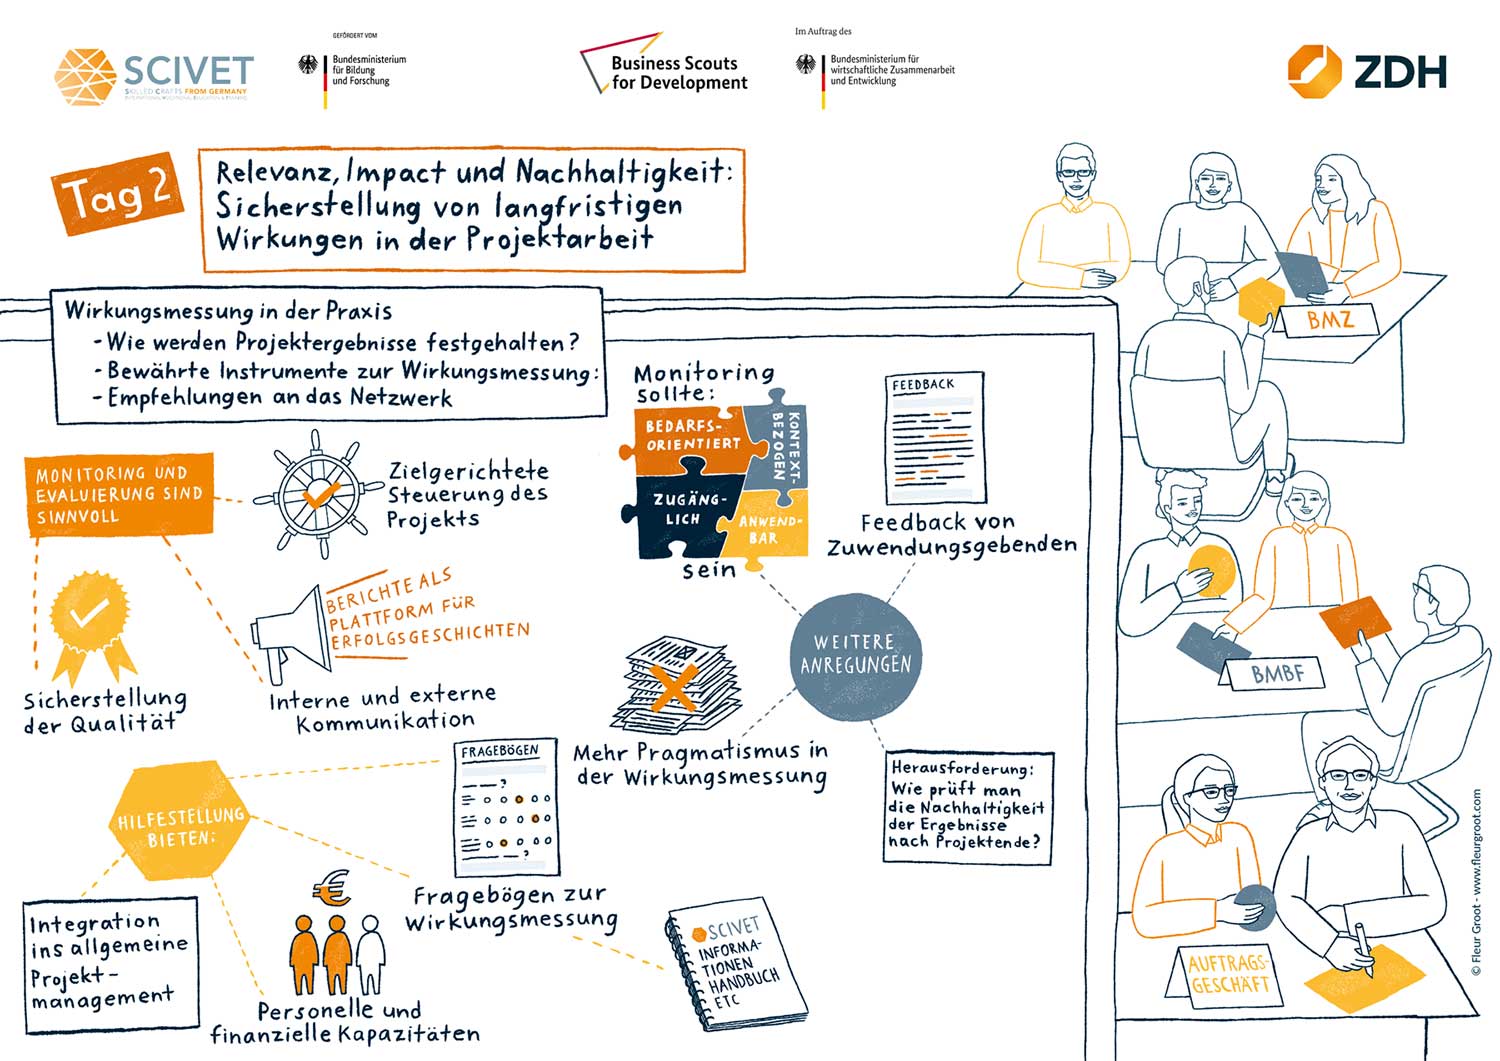 SCIVET
SKILLED CRAFTS FROM GERMANY
INTERNATIONAL VOCATIONAL EDUCATION & TRAINING
GEFÖRDERT VOM
Bundesministerium
für Bildung
und Forschung
Business Scouts
for Development
Im Auftrag des
Bundesministerium für
wirtschaftliche Zusammenarbeit
und Entwicklung
ZDH
Tag 2
Relevanz, Impact und Nachhaltigkeit:
Sicherstellung von langfristigen
Wirkungen in der Projektarbeit
Wirkungsmessung in der Praxis
- Wie werden Projektergebnisse festgehalten?
- Bewährte Instrumente zur Wirkungsmessung:
- Empfehlungen an das Netzwerk
MONITORING UND
EVALUIERUNG SIND
SINNVOLL
Zielgerichtete
Steuerung des
Projekts
Sicherstellung
der Qualität
BERICHTE ALS
PLATTFORM FÜR
ERFOLGSGESCHICHTEN
Interne und externe
Kommunikation
Monitoring
sollte:
BEDARFS-
ORIENTIERT
KONTEXT-
BEZOGEN
ZUGÄNG-
LICH
ANWEND-
BAR
sein
FEEDBACK
Feedback von
Zuwendungsgebenden
WEITERE
ANREGUNGEN
Mehr Pragmatismus in
der Wirkungsmessung
Herausforderung:
Wie prüft man
die Nachhaltigkeit
der Ergebnisse
nach Projektende?
HILFESTELLUNG
BIETEN:
FRAGEBÖGEN
?
?
Fragebögen zur
Wirkungsmessung
Integration
ins allgemeine
Projekt-
management
€
Personelle und
finanzielle Kapazitäten
SCIVET
INFORMA-
TIONEN
HANDBUCH
ETC
BMZ
BMBF
AUFTRAGS-
GESCHÄFT
© Fleur Groot - www.fleurgroot.com